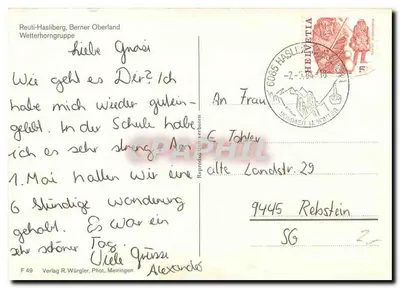 Reuti-Hasliberg, Berner Oberland
Wetterhorngruppe
Liebe Grosi
Wie geht es Dir? Ich
habe mich wieder gutein-
gelebt. In der Schule habe
ich es sehr streng. Am
1. Mai hatten wir eine
6 Stündige wanderung
gehabt. Es war ein
sehr schöner Tag.
Viele Grüsse
Alexander
An Frau
C. Tobler
alte Landstr. 29
9445 Rebstein
SG
HELVETIA
6085 HASLIBERG
F 49 Verlag R. Würgler, Phot. Meiringen
Reproduktion verboten